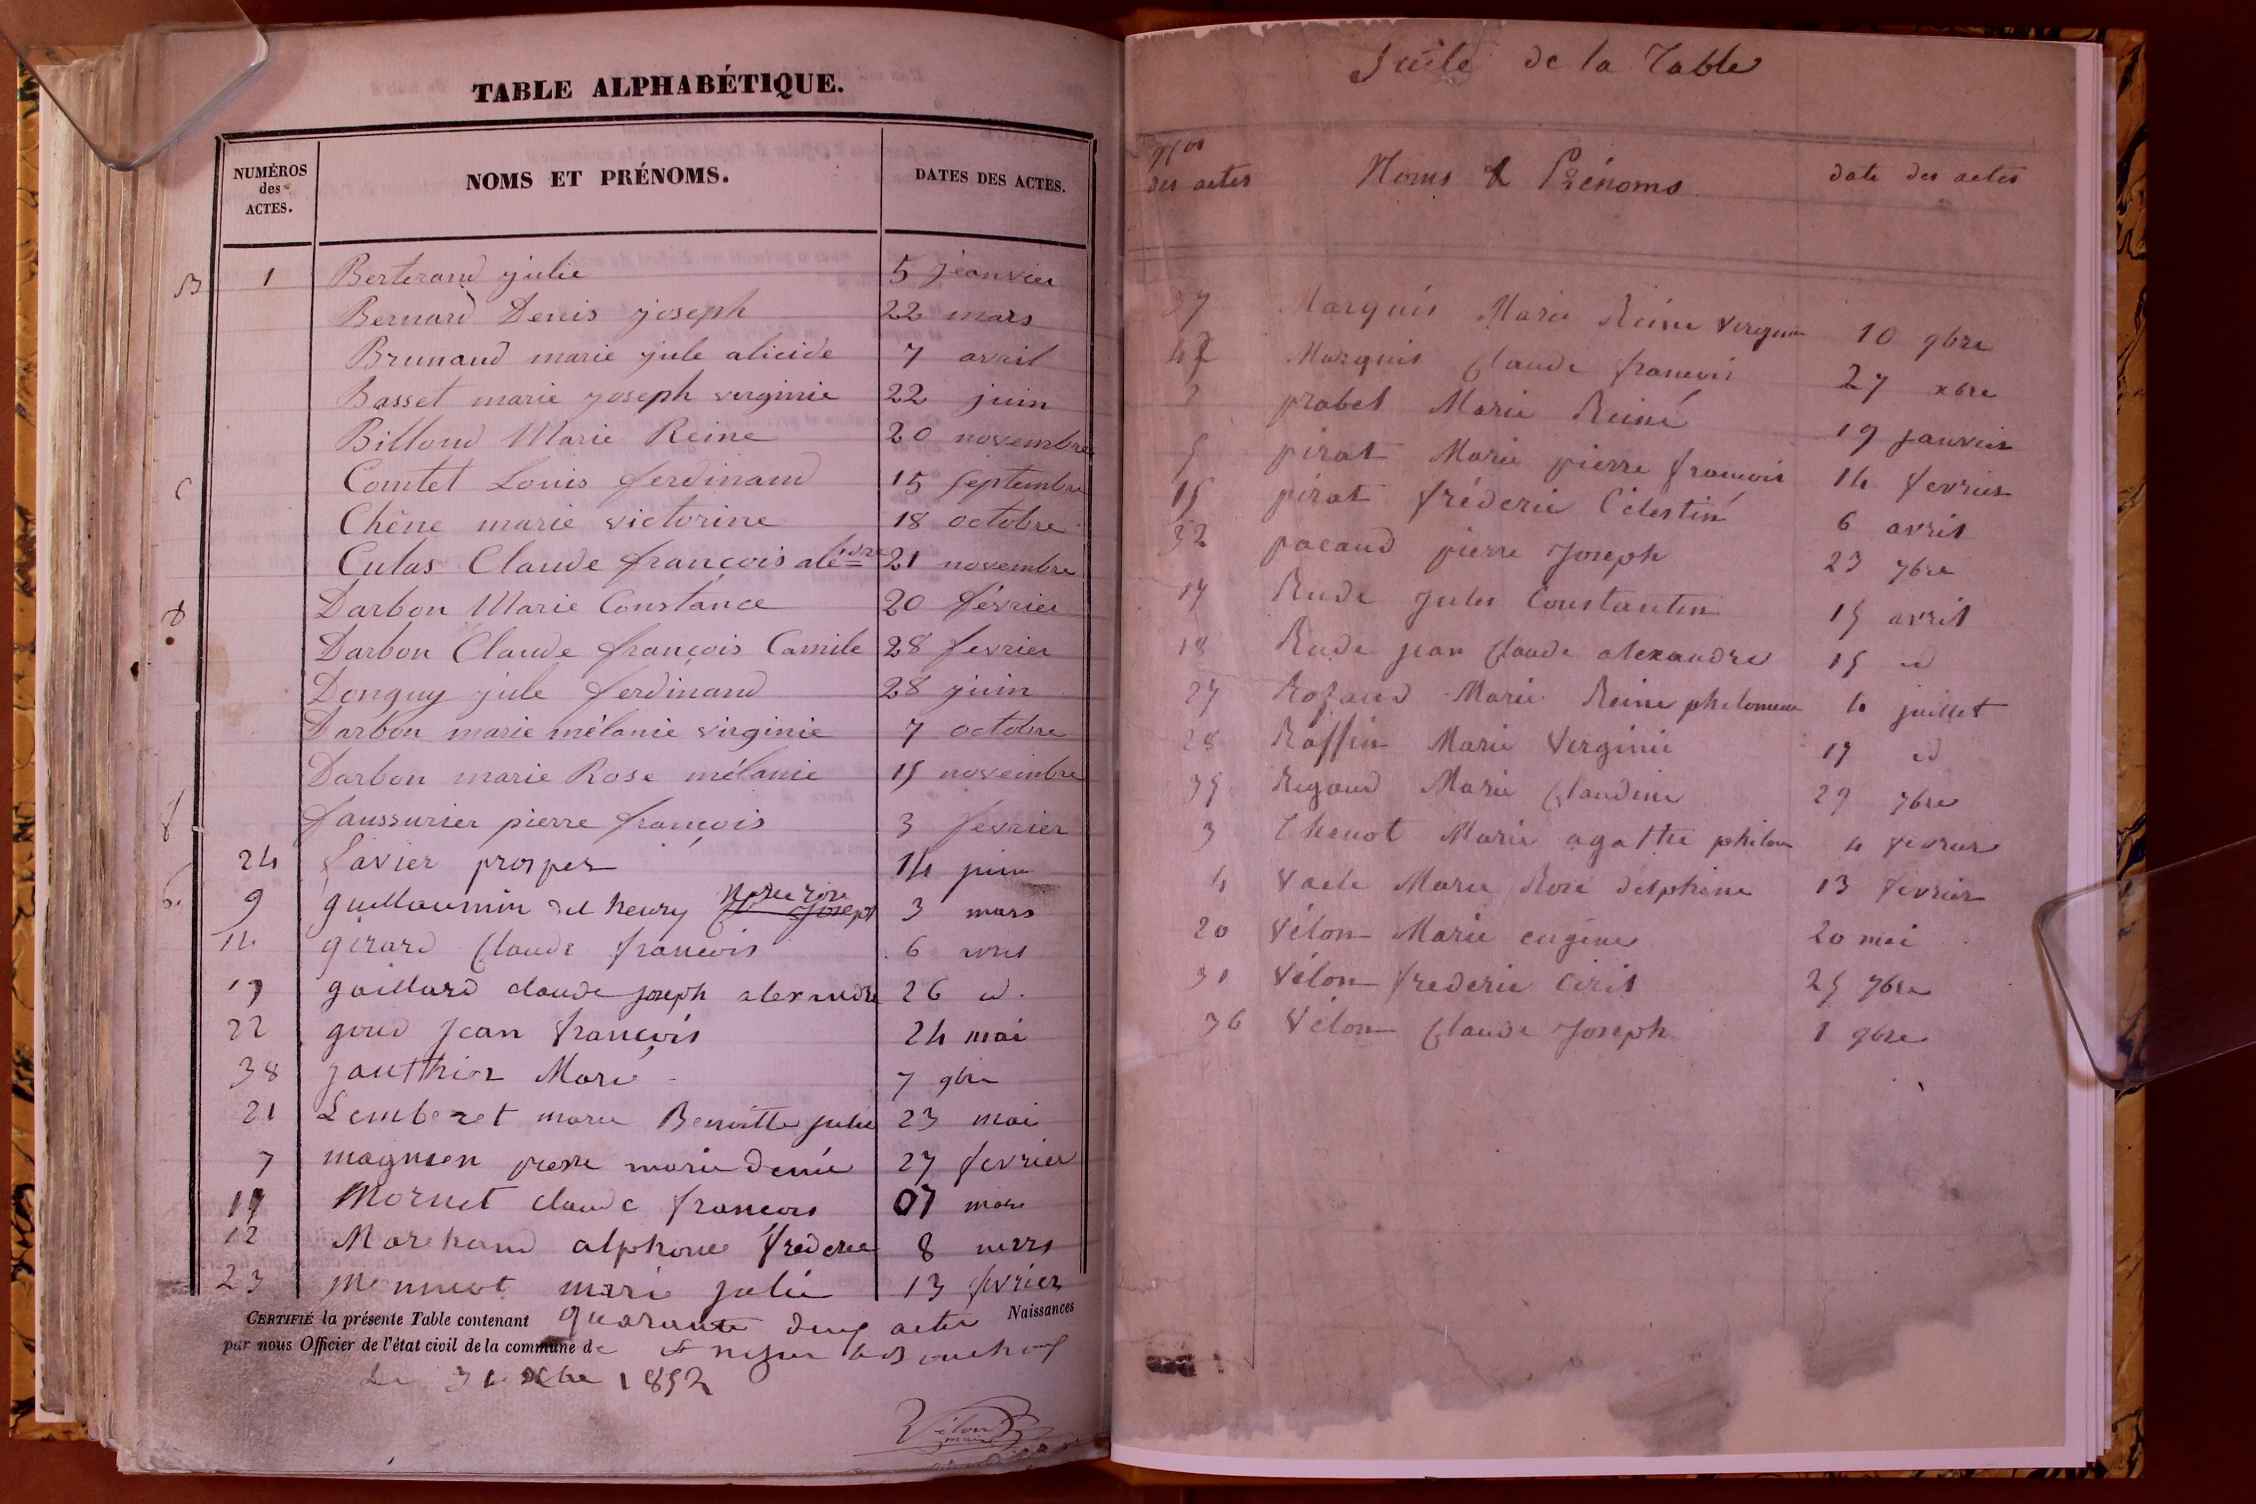 TABLE ALPHABÉTIQUE.
NUMÉROS des ACTES. NOMS ET PRÉNOMS. DATES DES ACTES.
B 1 Berterand julie 5 jeanvier
Bernard Denis joseph 22 mars
Brunaud marie jule alicide 7 avril
Basset marie joseph virginie 22 juin
Billoud Marie Reine 20 novembre
C Comtet Louis ferdinand 15 septembre
Chêne marie victorine 18 octobre
Culas Claude françois 21 novembre
D Darbon Marie Constance 20 février
Darbon Claude françois Camile 28 fevrier
Donguy jule ferdinand 28 juin
Darbon marie mélanie virginie 7 octobre
Darbon marie Rose mélanie 15 novembre
f faussurier pierre françois 3 fevrier
24 favier prosper 14 juin
9 guillaumin dit henry 3 mars
14 girard Claude francois 6 avril
19 gaillard claude joseph alexandre 26 id.
22 goud Jean francois 24 mai
38 gauthier Marie 7 9bre
21 Lemberet marie Benoitte julie 23 mai
7 magnien pierre marie denis 27 fevrier
11 Mornet claude francois 07 mars
12 Marchand alphonse frederic 8 mars
23 Monnot marie julie 13 fevrier
CERTIFIÉ la présente Table contenant quarante deux actes Naissances
par nous Officier de l'état civil de la commune de
Le 31 Xbre 1852
Vélon
maire
Suite de la Table
Nos des actes Noms & Prénoms date des actes
37 Marquis Marie Reine virginie 10 9bre
42 Marquis Claude francois 27 xbre
2 probet Marie Reine 19 janvier
5 pirat Marie pierre francois 14 fevrier
15 pirat fréderic Célestin 6 avril
32 pacaud pierre Joseph 23 7bre
17 Rude Jules Constantin 15 avril
18 Rude jean Claude alexandre 15 id
27 Rozand Marie Reine philomene 4 juillet
28 Roffin Marie Virginie 17 id
35 Rigaud Marie Claudine 29 7bre
3 Thenot Marie agathe philom 4 fevrier
4 Vacle Marie Rose delphine 13 fevrier
20 Vélon Marie eugene 20 mai
31 Vélon frederic Ciril 25 7bre
36 Vélon Claude Joseph 1 9bre